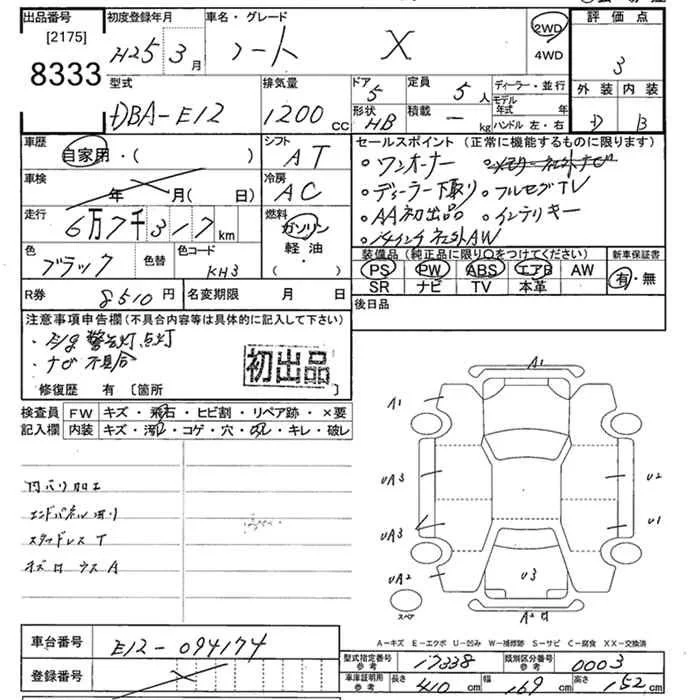 出品番号 初度登録年月 車名・グレード 2WD 評価点
[2175] H25年3月 ノート X 4WD 3
8333 型式 排気量 ドア 5 定員 5人 ディーラー・並行 外装 内装
DBA-E12 1200cc 形状 HB 積載 - kg モデル年式 年 D B
ハンドル 左・右
車歴 シフト セールスポイント (正常に機能するものに限ります)
自家用・( ) AT ・ワンオーナー
車検 年 月( 日) 冷房 AC ・ディーラー下取り ・フルセグTV
走行 6万7千317km 燃料 ガソリン ・AA初出品 ・インテリキー
軽油・ ・14インチ社外AW
色 ブラック 色替 色コード KH3 装備品 (純正品に限り○をつけてください) 新車保証書
PS PW ABS エアB AW 有・無
SR ナビ TV 本革
R券 8510円 名変期限 月 日 後日品
注意事項申告欄(不具合内容等は具体的に記入して下さい)
警告灯点灯
・ナビ不具合
初出品
修復歴 有 〔箇所
検査員 FW キズ・飛石・ヒビ割・リペア跡・×要
記入欄 内装 キズ・汚レ・コゲ・穴・切レ・キレ・破レ
A1
A1
UA3 U2
UA3 U1
UA2 U3
スペア A2
内バリ加工
スタッドレスT
A-キズ E-エクボ U-凹み W-補修跡 S-サビ C-腐食 XX-交換済
車台番号 E12-094174 型式指定番号 参考 17338 類別区分番号 参考 0003
登録番号 車庫証明用 参考 長さ 410cm 幅 169cm 高さ 152cm